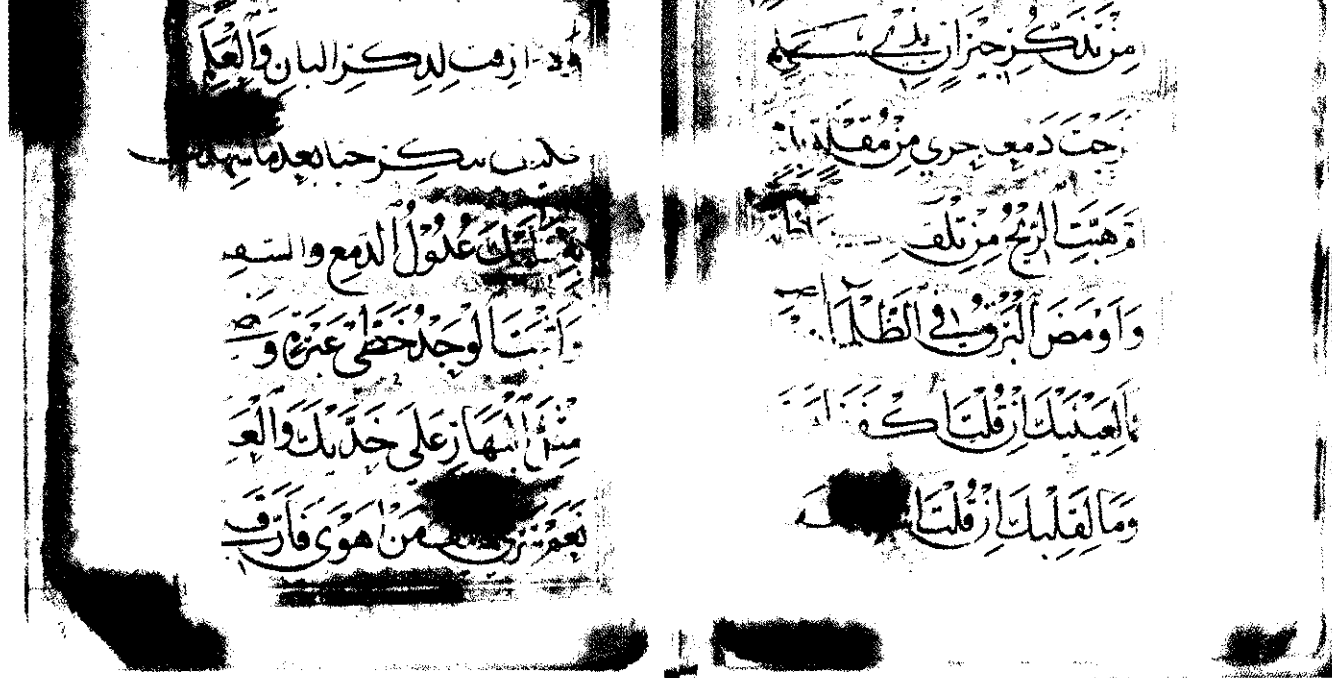 من تذكر جيران بذي سلم
مزجت دمعا جرى من مقلة
وهبت الريح من تلقا
واومض البرق في الظلماء
فما لعينيك ان قلت اكففا همتا
وما لقلبك ان قلت
ارقت لذكر البان والعلم
فكيف تنكر حبا بعد ما شهدت
به عليك عدول الدمع والسقم
واثبت الوجد خطي عبرة وض
مثل البهار على خديك والع
نعم سرى من اهوى فارق